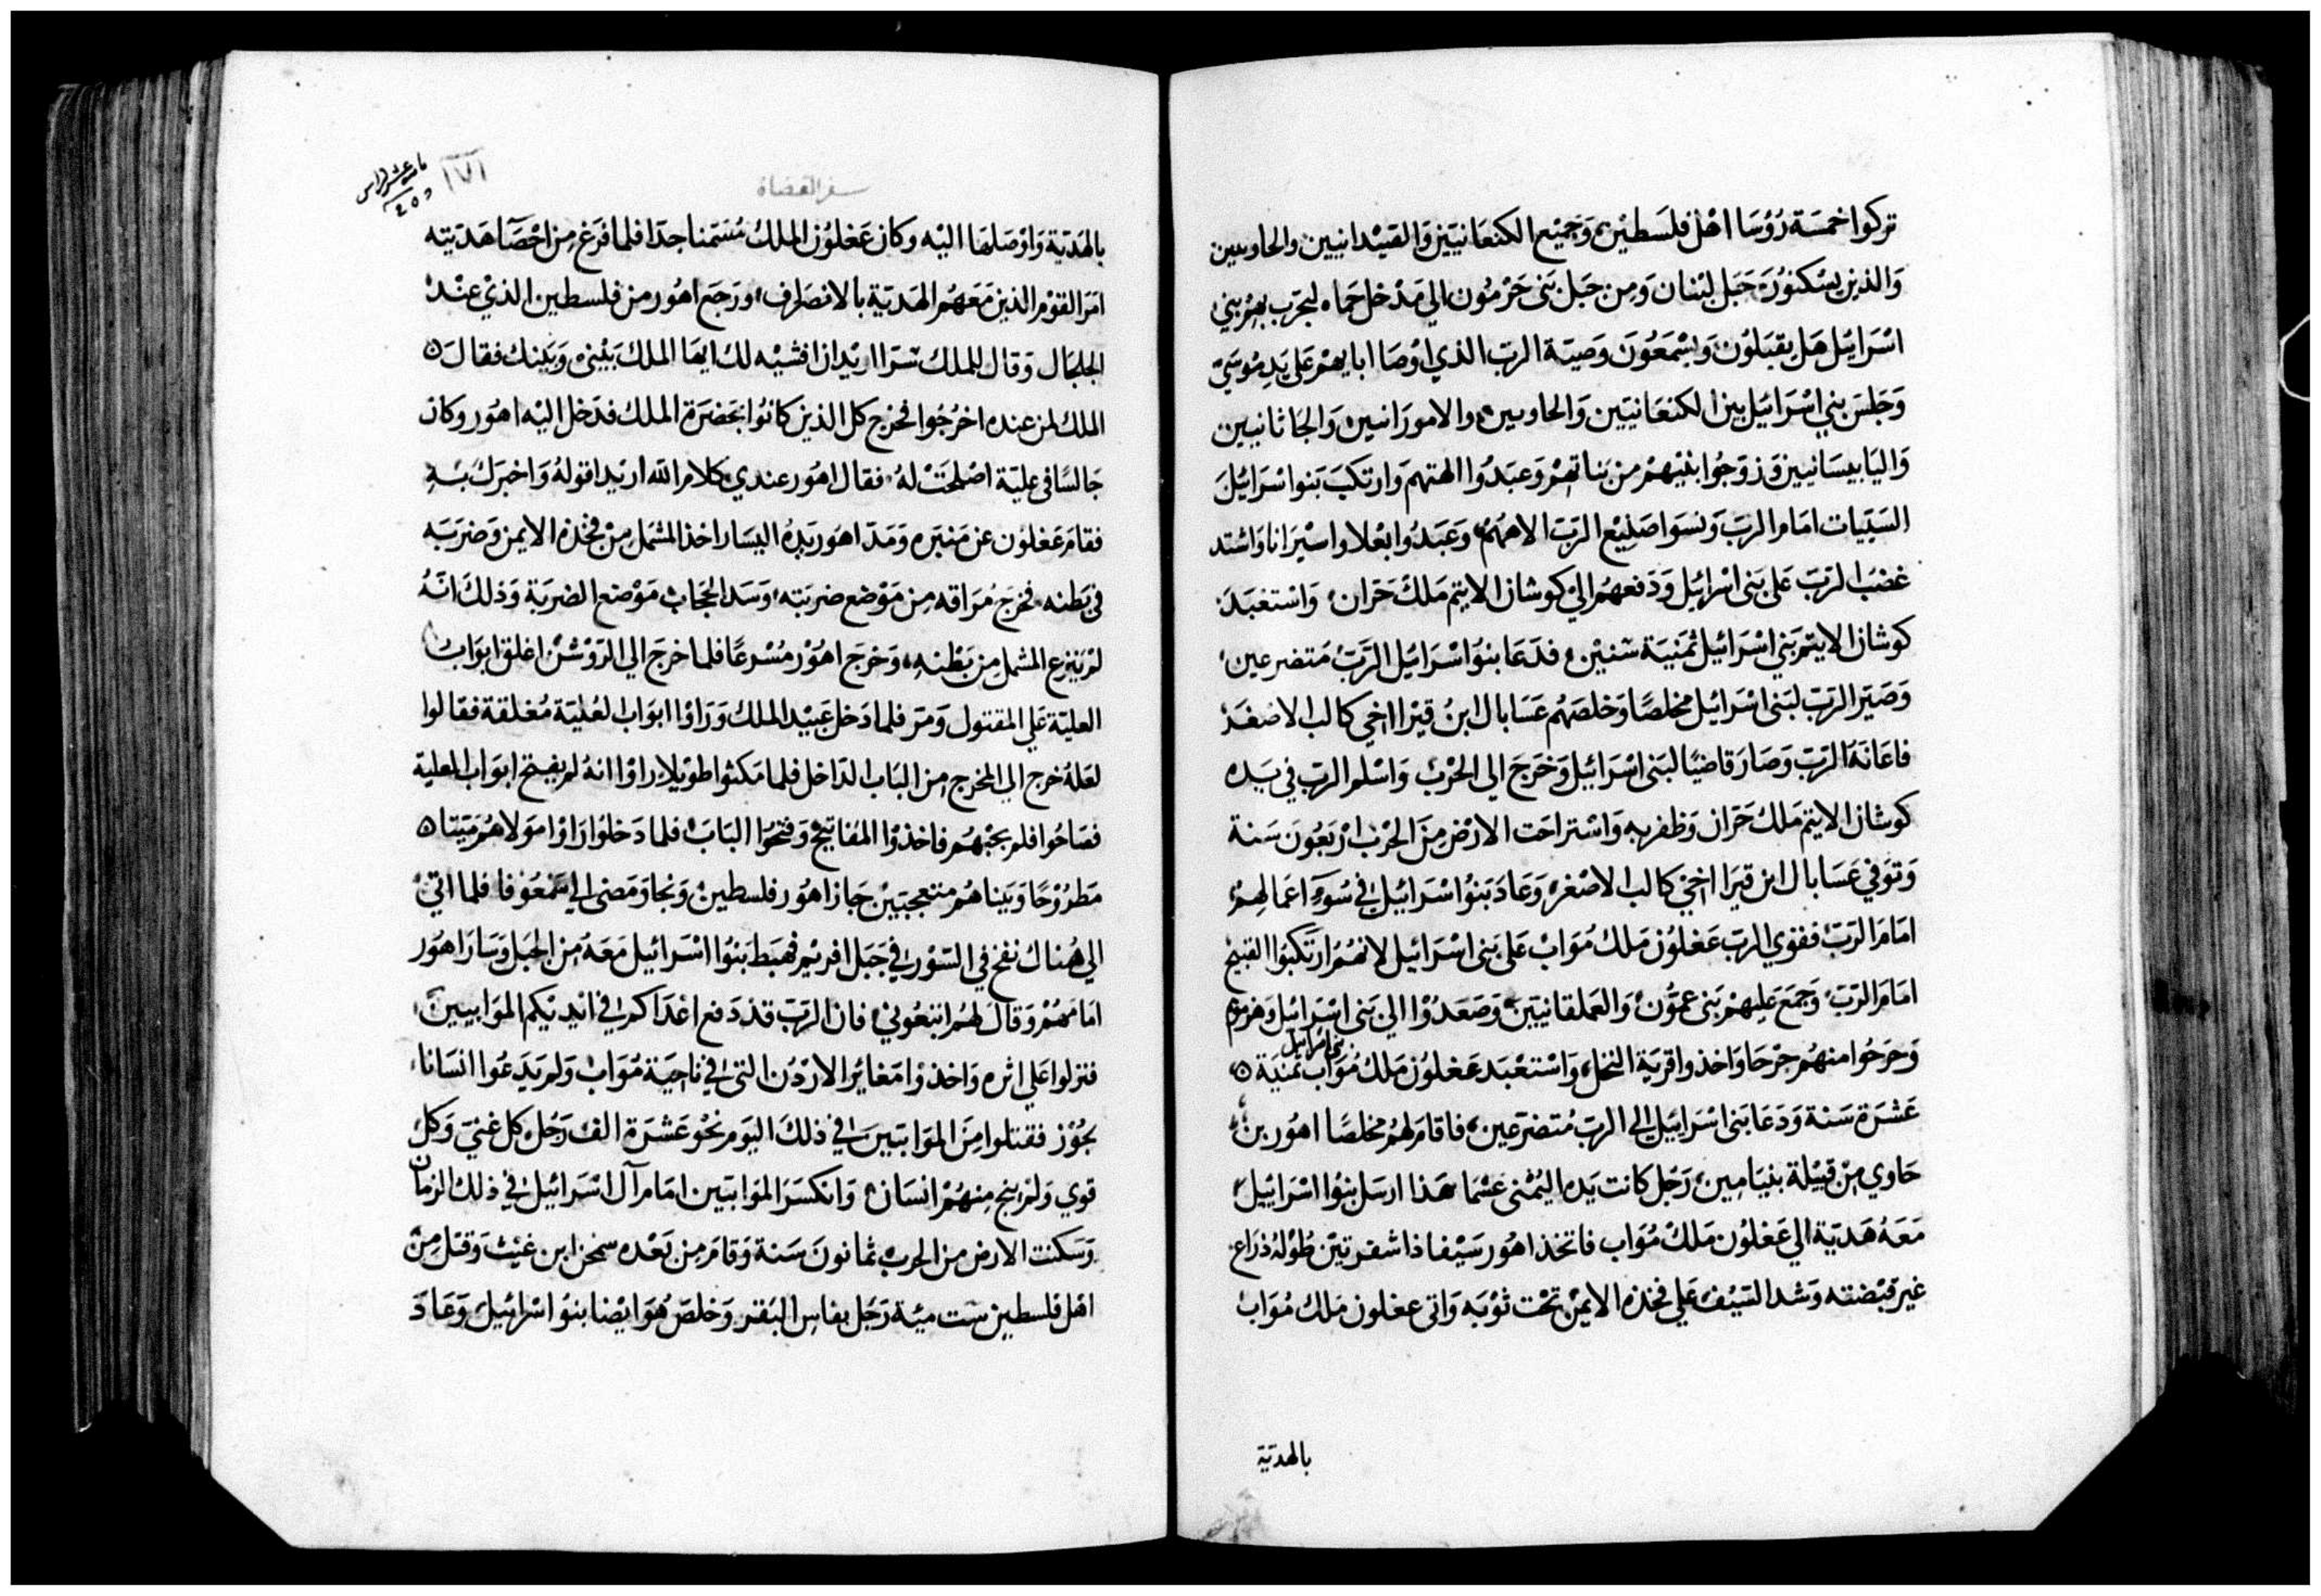 تركوا خمسة رؤسا اهل فلسطين وجميع الكنعانيين والقيدانيين والحاويين
والذين يسكنون جبل لبنان ومن جبل بني حرمون الي مدخل حماه ليجرب بهم بني
اسرائيل هل يقبلون ويسمعون وصية الرب الذي اوصا ابايهم علي يد موسي
وجلس بني اسرائيل بين الكنعانيين والحاويين والامورانيين والجاثانيين
واليابيسانيين وزوجوا بنيهم من بناتهم وعبدوا الهتهم وارتكب بنوا اسرائيل
السيات امام الرب ونسوا صنيع الرب الاههم وعبدوا بعلا واسيرانا واشتد
غضب الرب علي بني اسرائيل ودفعهم الي كوشان الايتم ملك حران واستعبد
كوشان الايتم بني اسرائيل ثمنية سنين فدعا بنوا اسرائيل الرب متضرعين
وصير الرب لبني اسرائيل مخلصا وخلصهم عسابال ابن قيرا اخي كالب الاصغر
فاعانه الرب وصار قاضيا لبني اسرائيل وخرج الي الحرب واسلم الرب في يده
كوشان الايتم ملك حران وظفر به واستراحت الارض من الحرب اربعون سنة
وتوفي عسابال ابن قيرا اخي كالب الاصغر وعاد بنوا اسرائيل في سوء اعمالهم
امام الرب فقوي الرب عغلون ملك مواب علي بني اسرائيل لانهم ارتكبوا القبيح
امام الرب وجمع عليهم بني عمون والعملقانيين وصعدوا الي بني اسرائيل وهزموهم
وجرحوا منهم جرحا واخذوا قرية النخل واستعبد عغلون ملك مواب بني اسرائيل ثمنية
عشرة سنة ودعا بني اسرائيل الي الرب متضرعين فاقام لهم مخلصا اهور بن
حاوي من قبيلة بنيامين رجل كانت يده اليمني عسما هذا ارسل بنوا اسرائيل
معه هدية الي عغلون ملك مواب فاتخذ اهور سيفا ذا شفرتين طوله ذراع
غير قبضته وشد السيف علي فخذه الايمن تحت ثوبه واتي عغلون ملك مواب
بالهدية
سفر القضاة
١٧١
بالهدية واوصلها اليه وكان عغلون الملك مسمنا جدا فلما فرغ من احصا هديته
امر القوم الذين معهم الهدية بالانصراف ورجع اهور من فلسطين الذي عند
الجلجال وقال للملك سرا اريد ان افشيه لك ايها الملك بيني وبينك فقال
الملك لمن عنده اخرجوا فخرج كل الذين كانوا بحضرة الملك فدخل اليه اهور وكان
جالسا في علية اصلحت له فقال اهور عندي كلام الله اريد اقوله واخبرك به
فقام عغلون عن منبره ومد اهور يده اليسار اخذ المشمل من فخذه الايمن وضربه
في بطنه فخرج مراقه من موضع ضربته وسد الحجاب موضع الضربة وذلك انه
لم ينزع المشمل من بطنه وخرج اهور مسرعا فلما خرج الي الروشن اغلق ابواب
العلية علي المقتول ومر فلما دخل عبيد الملك وراوا ابواب العلية مغلقة فقالوا
لعله خرج الي المخرج من الباب الداخل فلما مكثوا طويلا راوا انه لم يفتح ابواب العلية
فصاحوا فلم يجبهم فاخذوا المفاتيح وفتحوا الباب فلما دخلوا راوا مولاهم ميتا
مطروحا وبيناهم متعجبين جاز اهور فلسطين ونجا ومضي الي سمعوفا فلما اتي
الي هناك نفخ في السور في جبل افريم فهبط بنوا اسرائيل معه من الجبل وسار اهور
امامهم وقال لهم اتبعوني فان الرب قد دفع اعداكم في ايديكم الموابيين
فنزلوا علي اثره واخذوا مغائر الاردن التي في ناحية مواب ولم يدعوا انسانا
يجوز فقتلوا من الموابيين في ذلك اليوم نحو عشرة الف رجل كل غني وكل
قوي ولم ينج منهم انسان وانكسر الموابيين امام آل اسرائيل في ذلك الزمان
وسكنت الارض من الحرب ثمانون سنة وقام من بعده سمخر ابن غيث وقتل من
اهل فلسطين ست مئة رجل بفاس البقر وخلص هو ايضا بنو اسرائيل وعاد